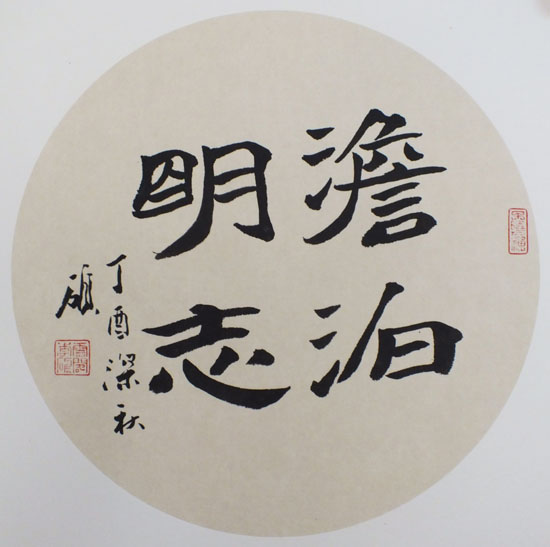 澹泊
明志
丁酉深秋
硕